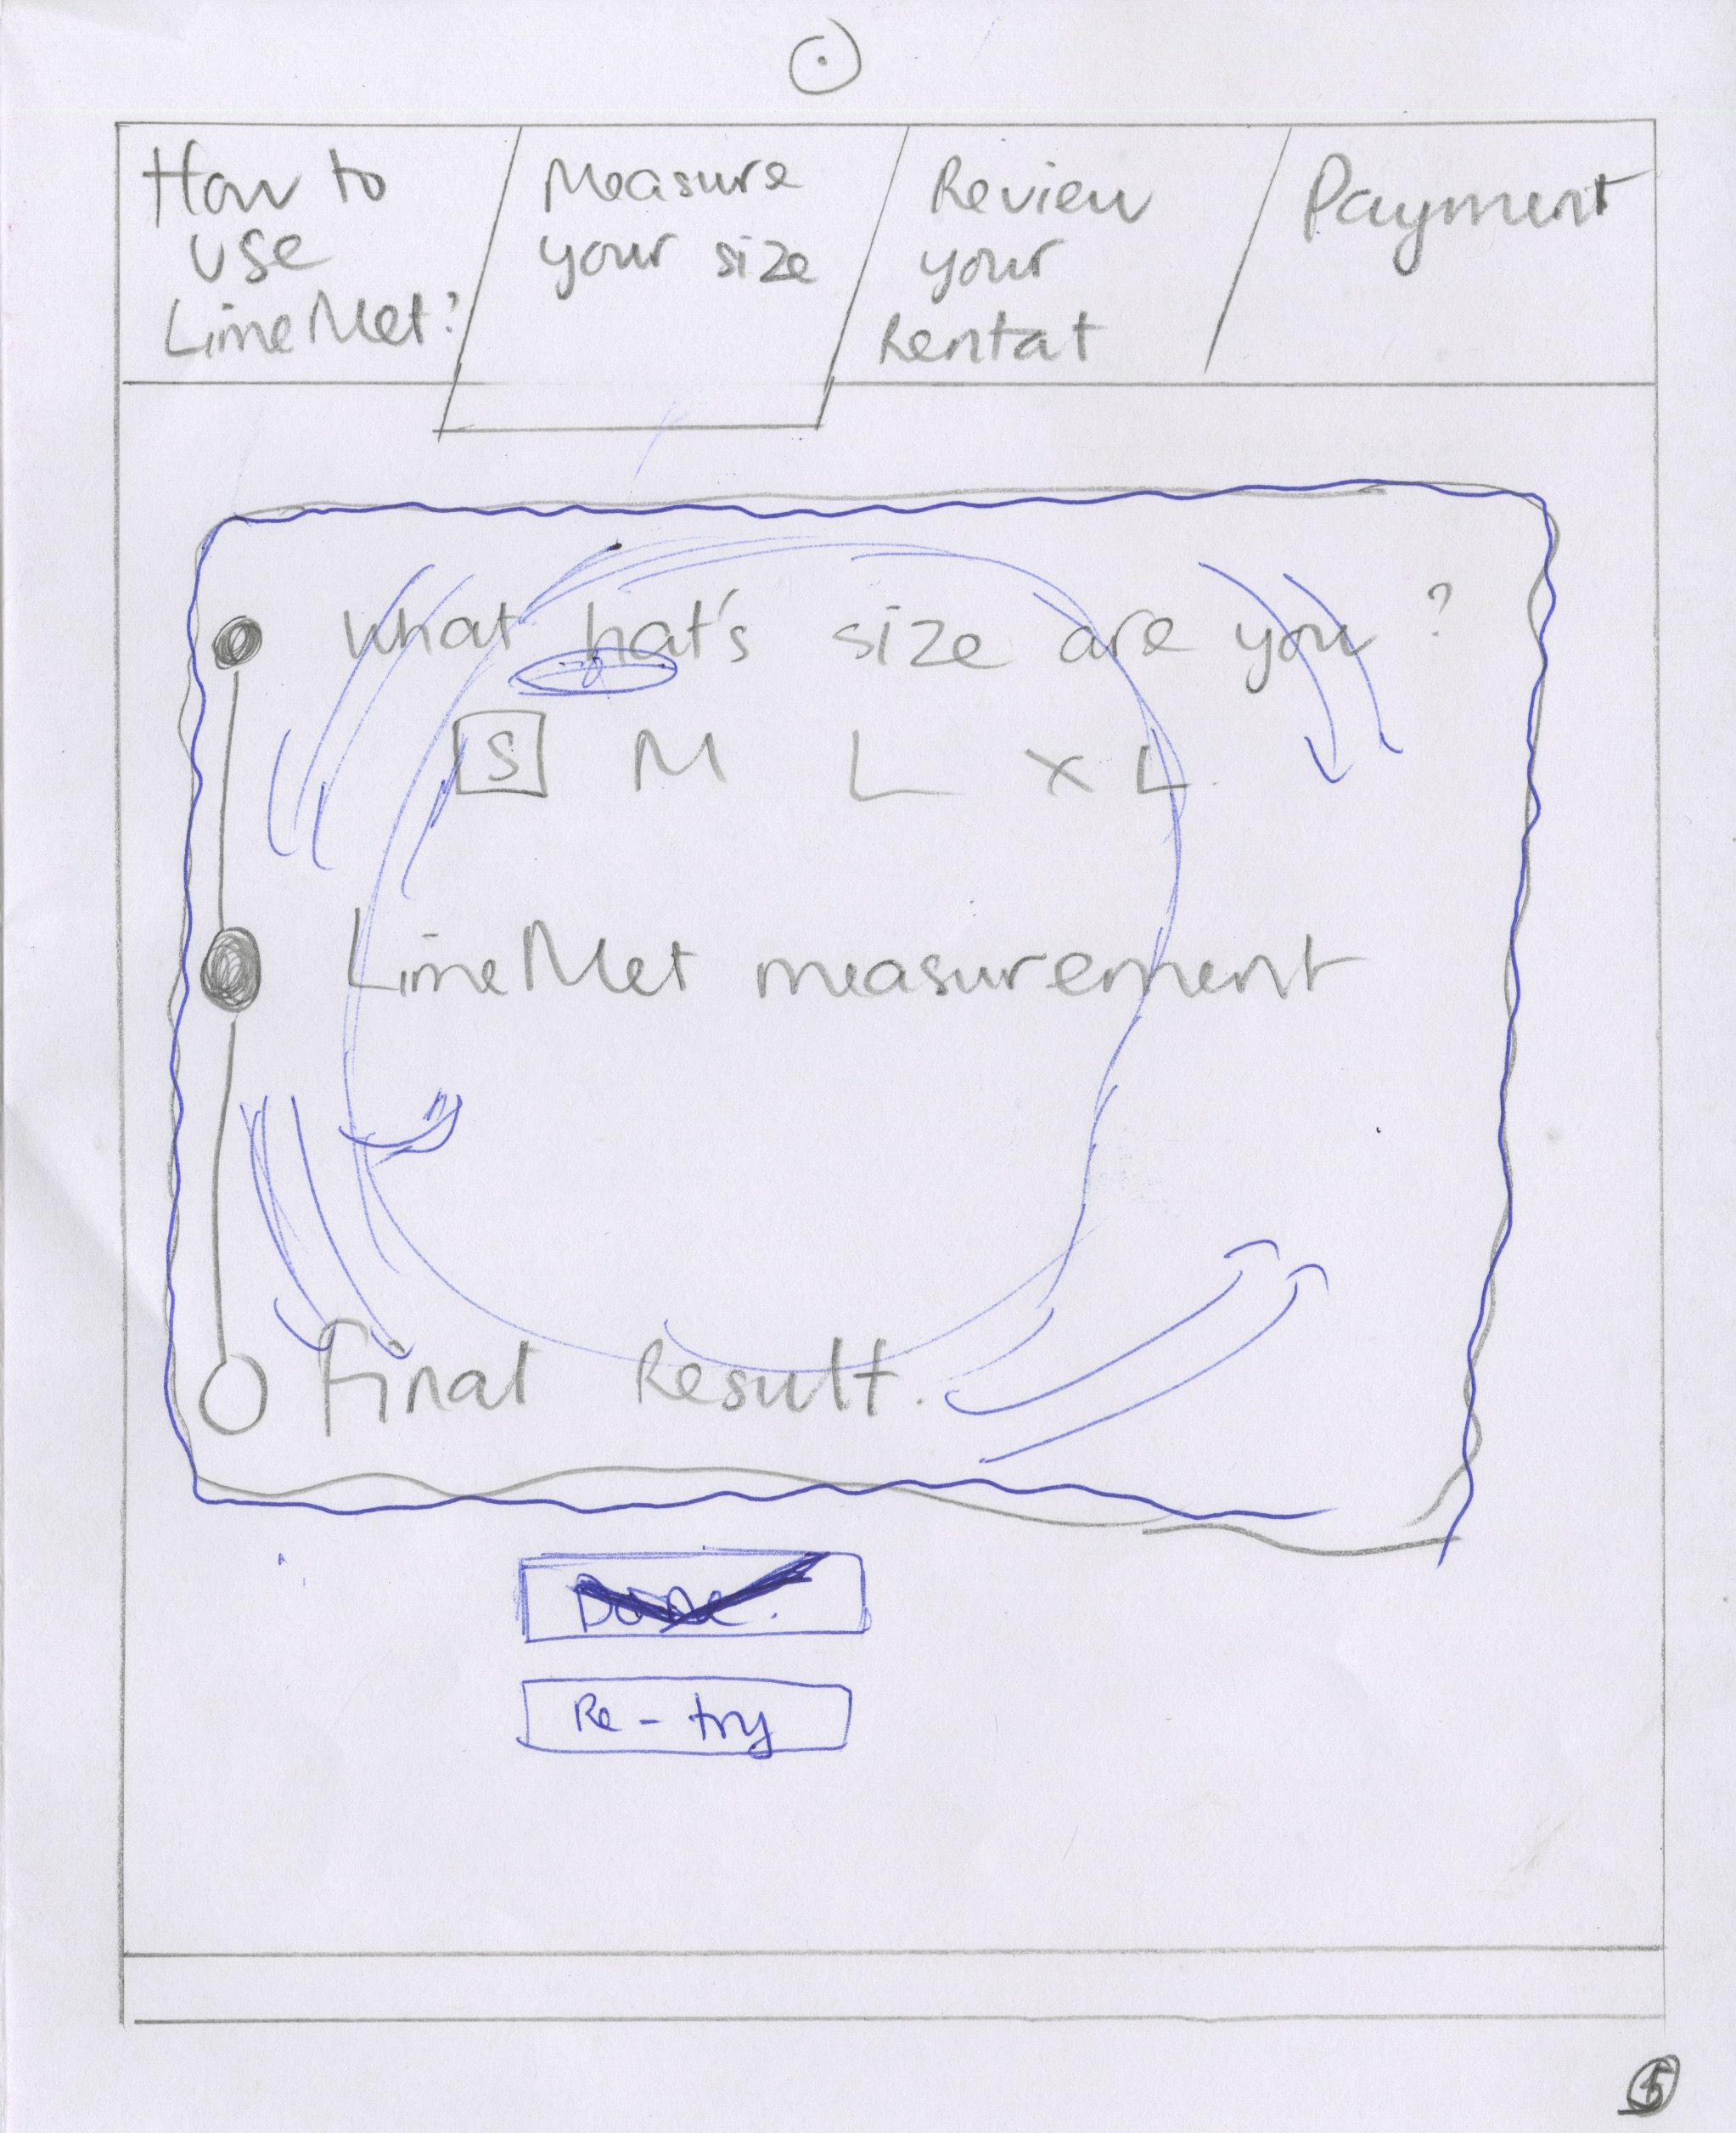 How to
use
LimeMet?
Measure
your size
Review
your
Rentat
Payment
what hat's size are you?
S M L XL
LimeMet measurement
Final Result.
Done.
Re-try
5